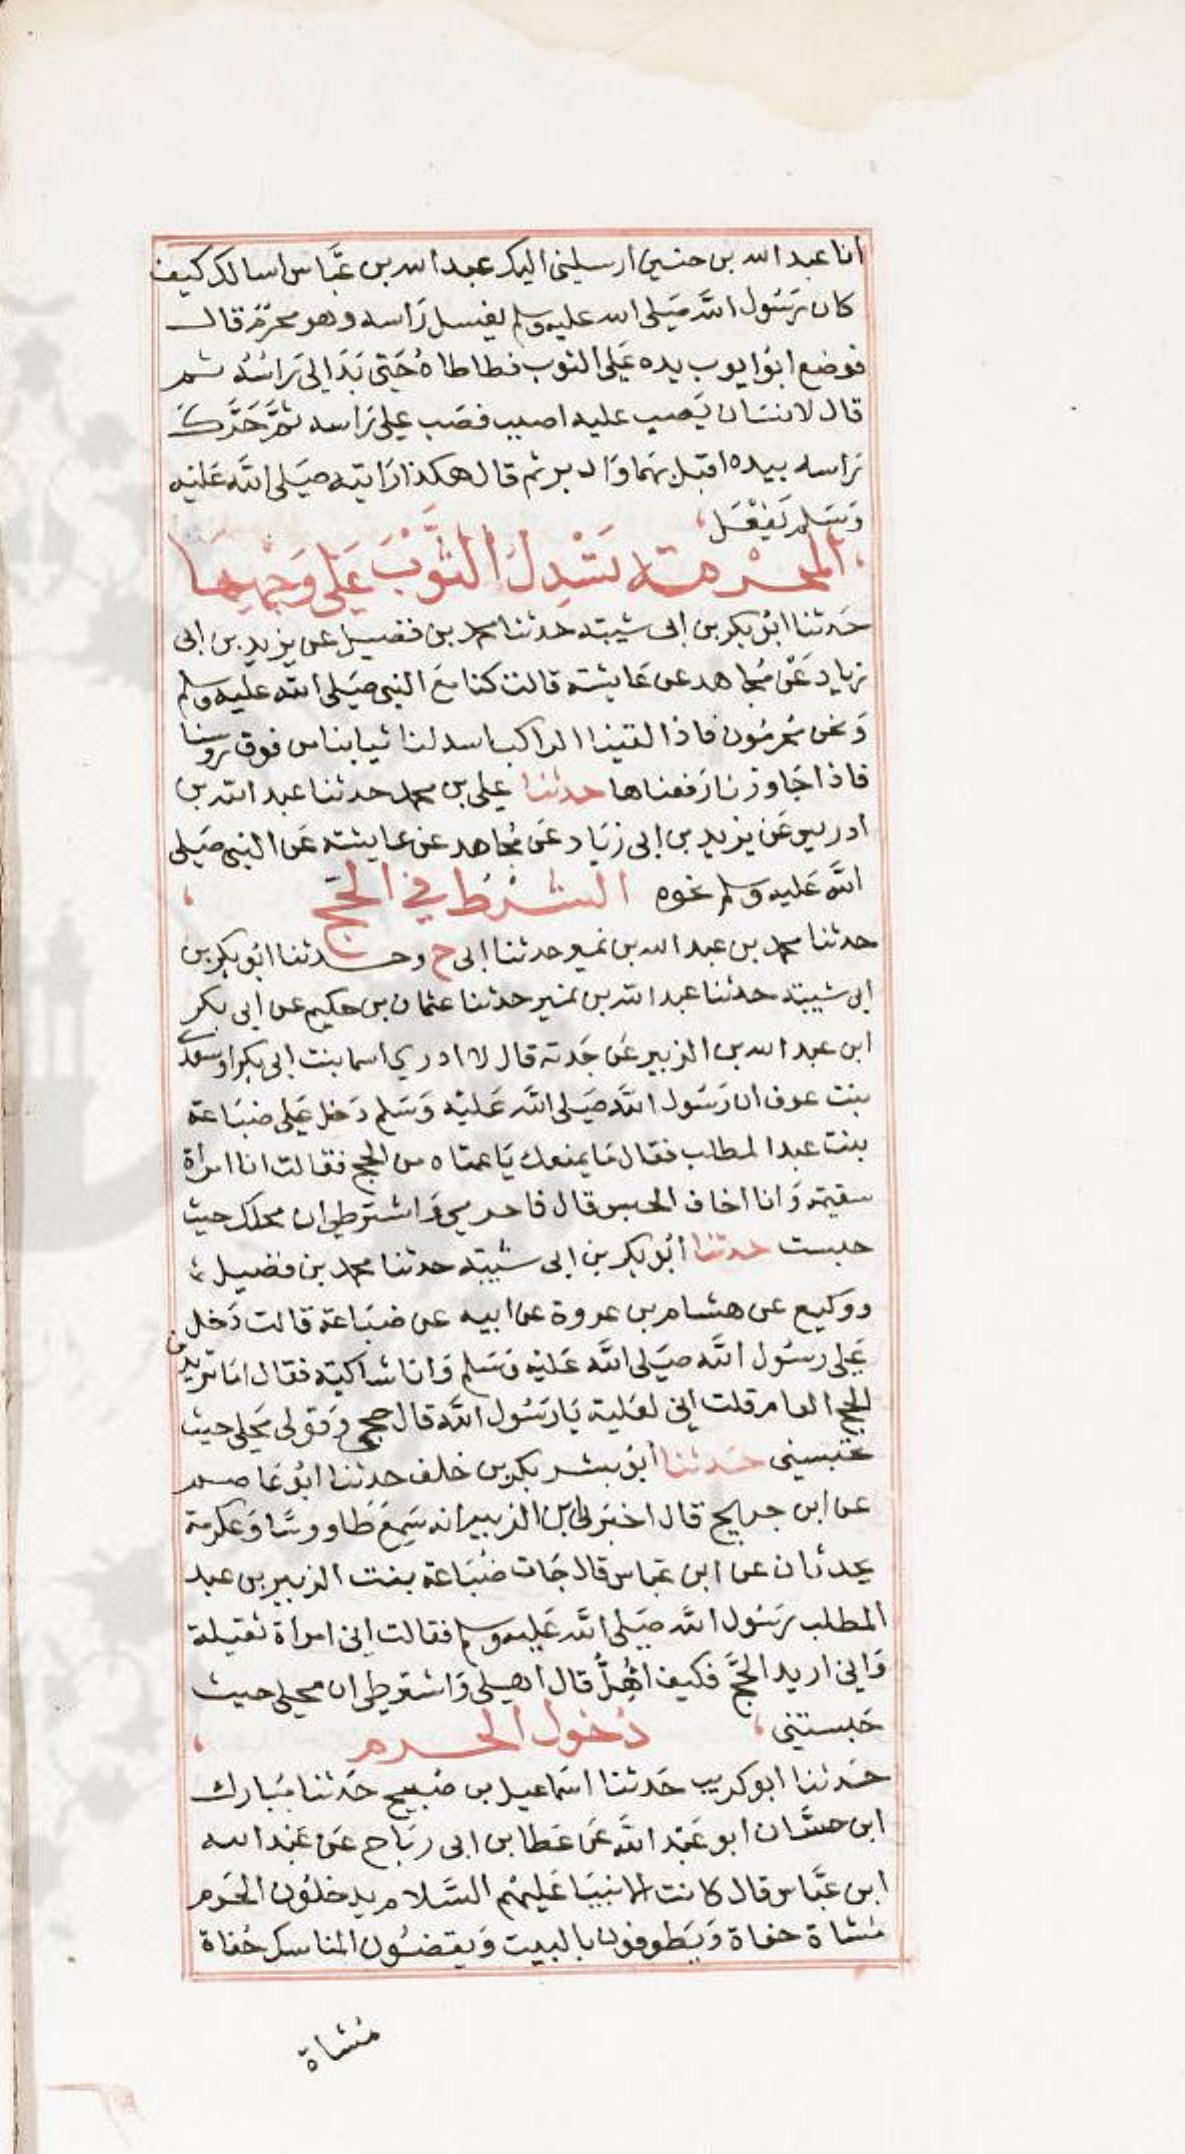 انا عبد الله بن حنين ارسلني اليك عبد الله بن عَبَّاس اسالك كيف
كان رَسُول اللَّه صَلى الله عليه وسلم يغسل رَاسه وهو محرم قال
فوضع ابُوايوب يده عَلى الثوب فطاطاهُ حَتى بَدَا لي رَاسُهُ ثم
قال لانسَان يَصب عليه اصبب فصَب على رَاسه ثمَّ حَرَّكَ
رَاسه بيده اقبل بهما وَادبر ثم قال هكذا رَايته صَلى اللَّه عَليْه
وَسَلم يَفعَل
المحرمة تسْدِل الثَّوْبَ عَلى وَجْهِهَا
حَدثنا ابُو بكر بن ابى شيبة حدثنا محمد بن فضيل عن يزيد بن ابى
زياد عَنْ مُجاهد عن عَايشة قالت كنا مَعَ النبي صَلى الله عليه وسلم
وَنحن مُحرمُون فاذا لقينا الراكب اسدلنا ثيابنا من فوق روسنا
فاذا جَاوزنا رَفعناها حدثنا علي بن محمد حدثنا عبد الله بن
ادريس عَن يزيد بن ابى زيَاد عَن مُجاهد عن عايشة عَن النبي صَلى
اللَّه عَليه وسلم نحوه الشرْط في الحَج
حدثنا محمد بن عبد الله بن نمير حدثنا ابى ح وحدثنا ابُو بكر بن
ابى شيبة حدثنا عبد الله بن نمير حدثنا عثمان بن حكيم عن ابى بكر
ابن عبد الله بن الزبير عَن جَدته قال لا ادري اسما بنت ابى بكر او سعدى
بنت عوف ان رَسُول اللَّه صَلى اللَّه عَليْه وَسَلم دَخل عَلى ضبَاعة
بنت عبد المطلب فقال مَا يمنعك يَا عمتاه من الحج فقالت انا امراة
سقيمة وَانا اخاف الحبس قال فاحرمي وَاشترطي ان محلك حيث
حبست حدثنا ابُو بكر بن ابى شيبة حدثنا محمد بن فضيل
ووكيع عن هشام بن عروة عن ابيه عن ضبَاعة قالت دَخل
عَلى رسُول اللَّه صَلى اللَّه عَليْه وَسَلم وَانا شاكية فقال امَا تريدين
الحج العام قلت اني لعَليلة يَا رَسُول اللَّه قال حجي وَقولي مَحلي حيث
تحبسيني حَدثنا ابُو بشر بكر بن خلف حدثنا ابُو عَاصم
عن ابن جريج قال اخبَرني ابن الزبير انه سَمِعَ طَاووسًا وَعكرمة
يحدثان عن ابن عَباس قال جَات ضُبَاعة بنت الزبير بن عبد
المطلب رَسُول اللَّه صَلى اللَّه عَليه وسلم فقالت اني امراة ثقيلة
وَاني اريد الحَجَّ فكيف اُهِلُّ قال اهلي وَاشترطي ان محلي حيث
حَبستني دُخول الحرم
حَدثنا ابو كريب حَدثنا اسَماعيل بن صَبيح حَدثنا مبَارك
ابن حسَّان ابو عَبْد اللَّه عَن عَطا بن ابى ربَاح عَن عَبد الله
ابن عَبَّاس قال كانت الانبيَا عَليهُم السَّلام يدخلُون الحَرم
مُشاة حفاة وَيَطوفون بالبيت وَيقضُون المناسك حُفاة
مُشاة